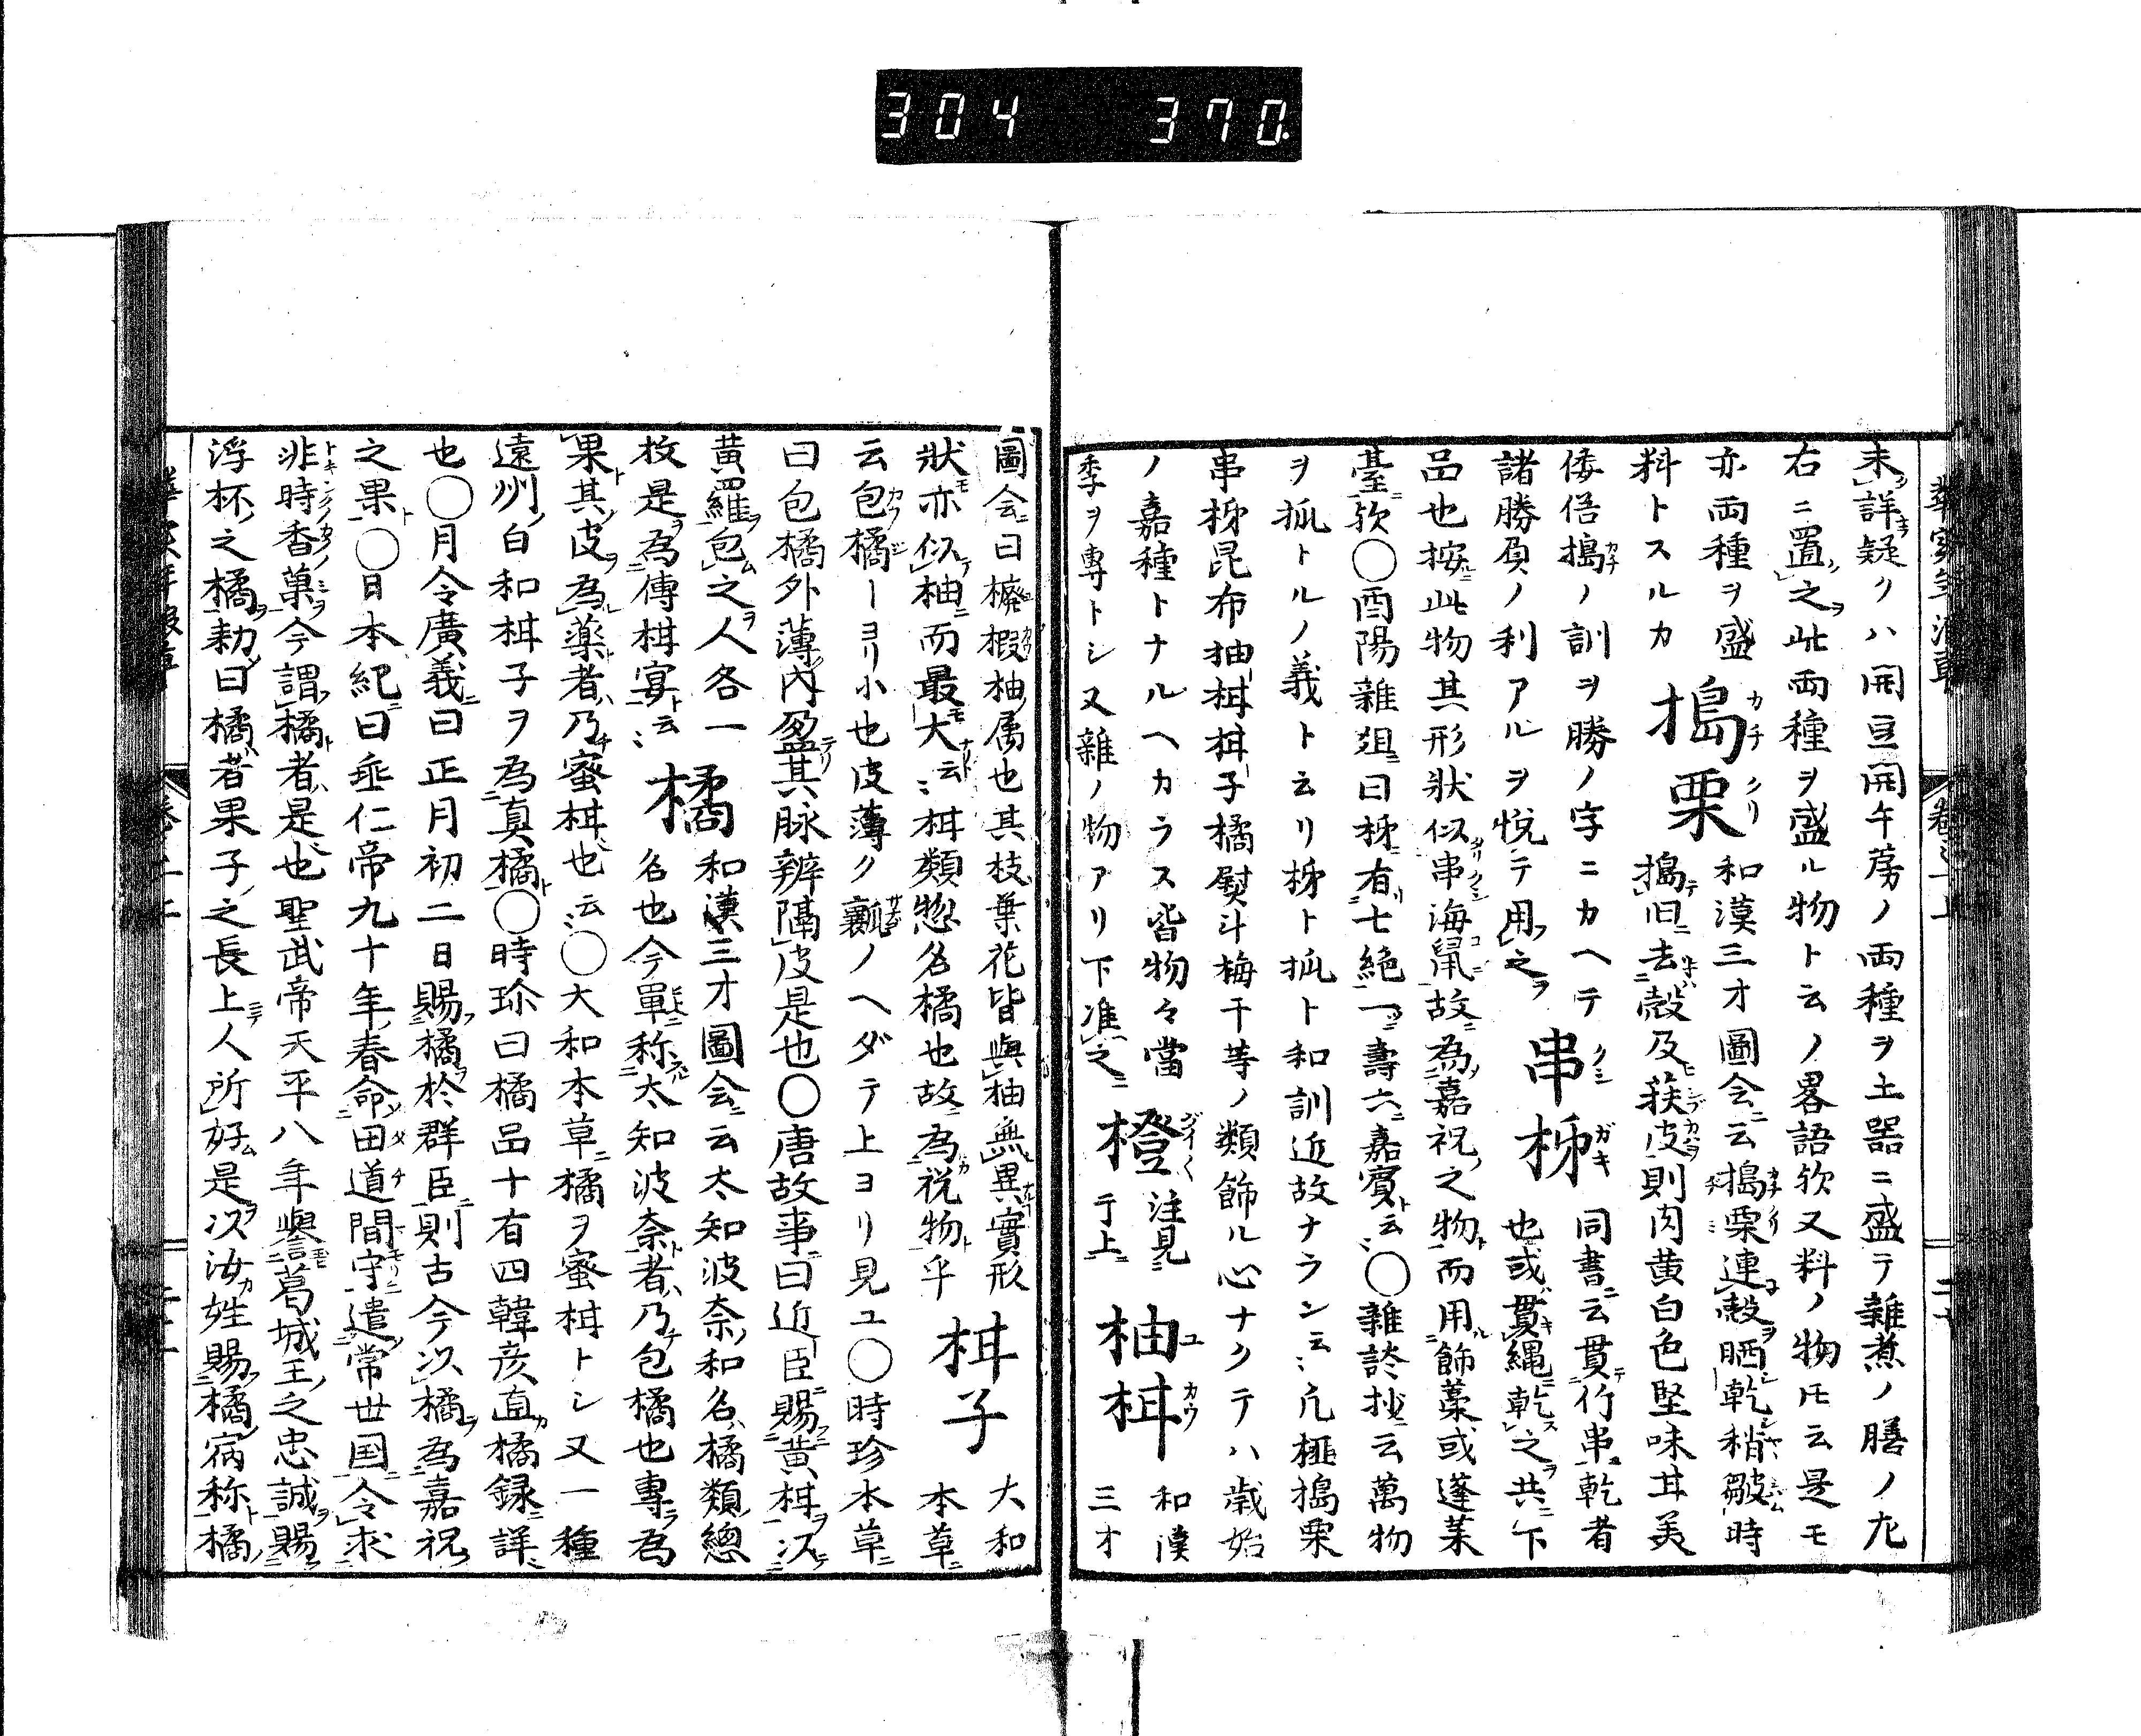 304 370
未詳疑クハ開豆開午蒡ノ両種ヲ土器ニ盛テ雑煮ノ膳ノ尢
右ニ置之此両種ヲ盛ル物ト云ノ畧語欤又料ノ物𪜈云是モ
亦両種ヲ盛
料トスルカ
搗栗
カチクリ
和漢三才圖会ニ云搗栗連殻晒乾稍皺時
搗臼去殻及荴皮則肉黄白色堅味甘美
倭俗搗ノ訓ヲ勝ノ字ニカヘテ
諸勝負ノ利アルヲ悦テ用之
串柹
クシガキ
同書ニ云貫竹串乾者
也或貫縄乾之共下
品也按此物其形状似串海鼠故為嘉祝之物而用飾藁或蓬莱
臺欤〇酉陽雑俎曰柹有七絶一壽六嘉賓云〻〇雑談抄云萬物
ヲ抓トルノ義ト云リ柹ト抓ト和訓近故ナラン云〻凢榧搗栗
串柹昆布柚柑柑子橘熨斗梅干等ノ類飾ル心ナクテハ歳始
ノ嘉種トナルヘカラス皆物々當
季ヲ専トシ又雑ノ物アリ下准之
橙
ダイ〱
注見
于上
柚柑
ユカウ
和漢
三才
圖会曰櫠椵柚属也其枝葉花皆與柚無異實形
状亦似柚而最大云〻柑類惣名橘也故為祝物乎
柑子
大和
本草
云包橘ーヨリ小也皮薄ク瓤ノヘダテ上ヨリ見ユ〇時珍本草
曰包橘外薄内盈其脉辨隔皮是也〇唐故事曰近臣賜黄柑以
黄羅包之人各一
枚是為傳柑宴云〻
橘
和漢三才圖会云太知波奈和名橘類總
名也今單称太知波奈者乃包橘也專為
果其皮為薬者乃蜜柑也云〻〇大和本草橘ヲ蜜柑トシ又一種
遠州白和柑子ヲ為真橘〇時珍曰橘品十有四韓彦直橘録詳
也〇月令廣義曰正月初二日賜橘於群臣則古今以橘為嘉祝
之果〇日本紀曰垂仁帝九十年春命田道間守遣常世国令求
非時香菓今謂橘者是也聖武帝天平八年譽葛城王之忠誠賜
浮杯之橘勅曰橘者果子之長上人所好是以汝姓賜橘病称橘